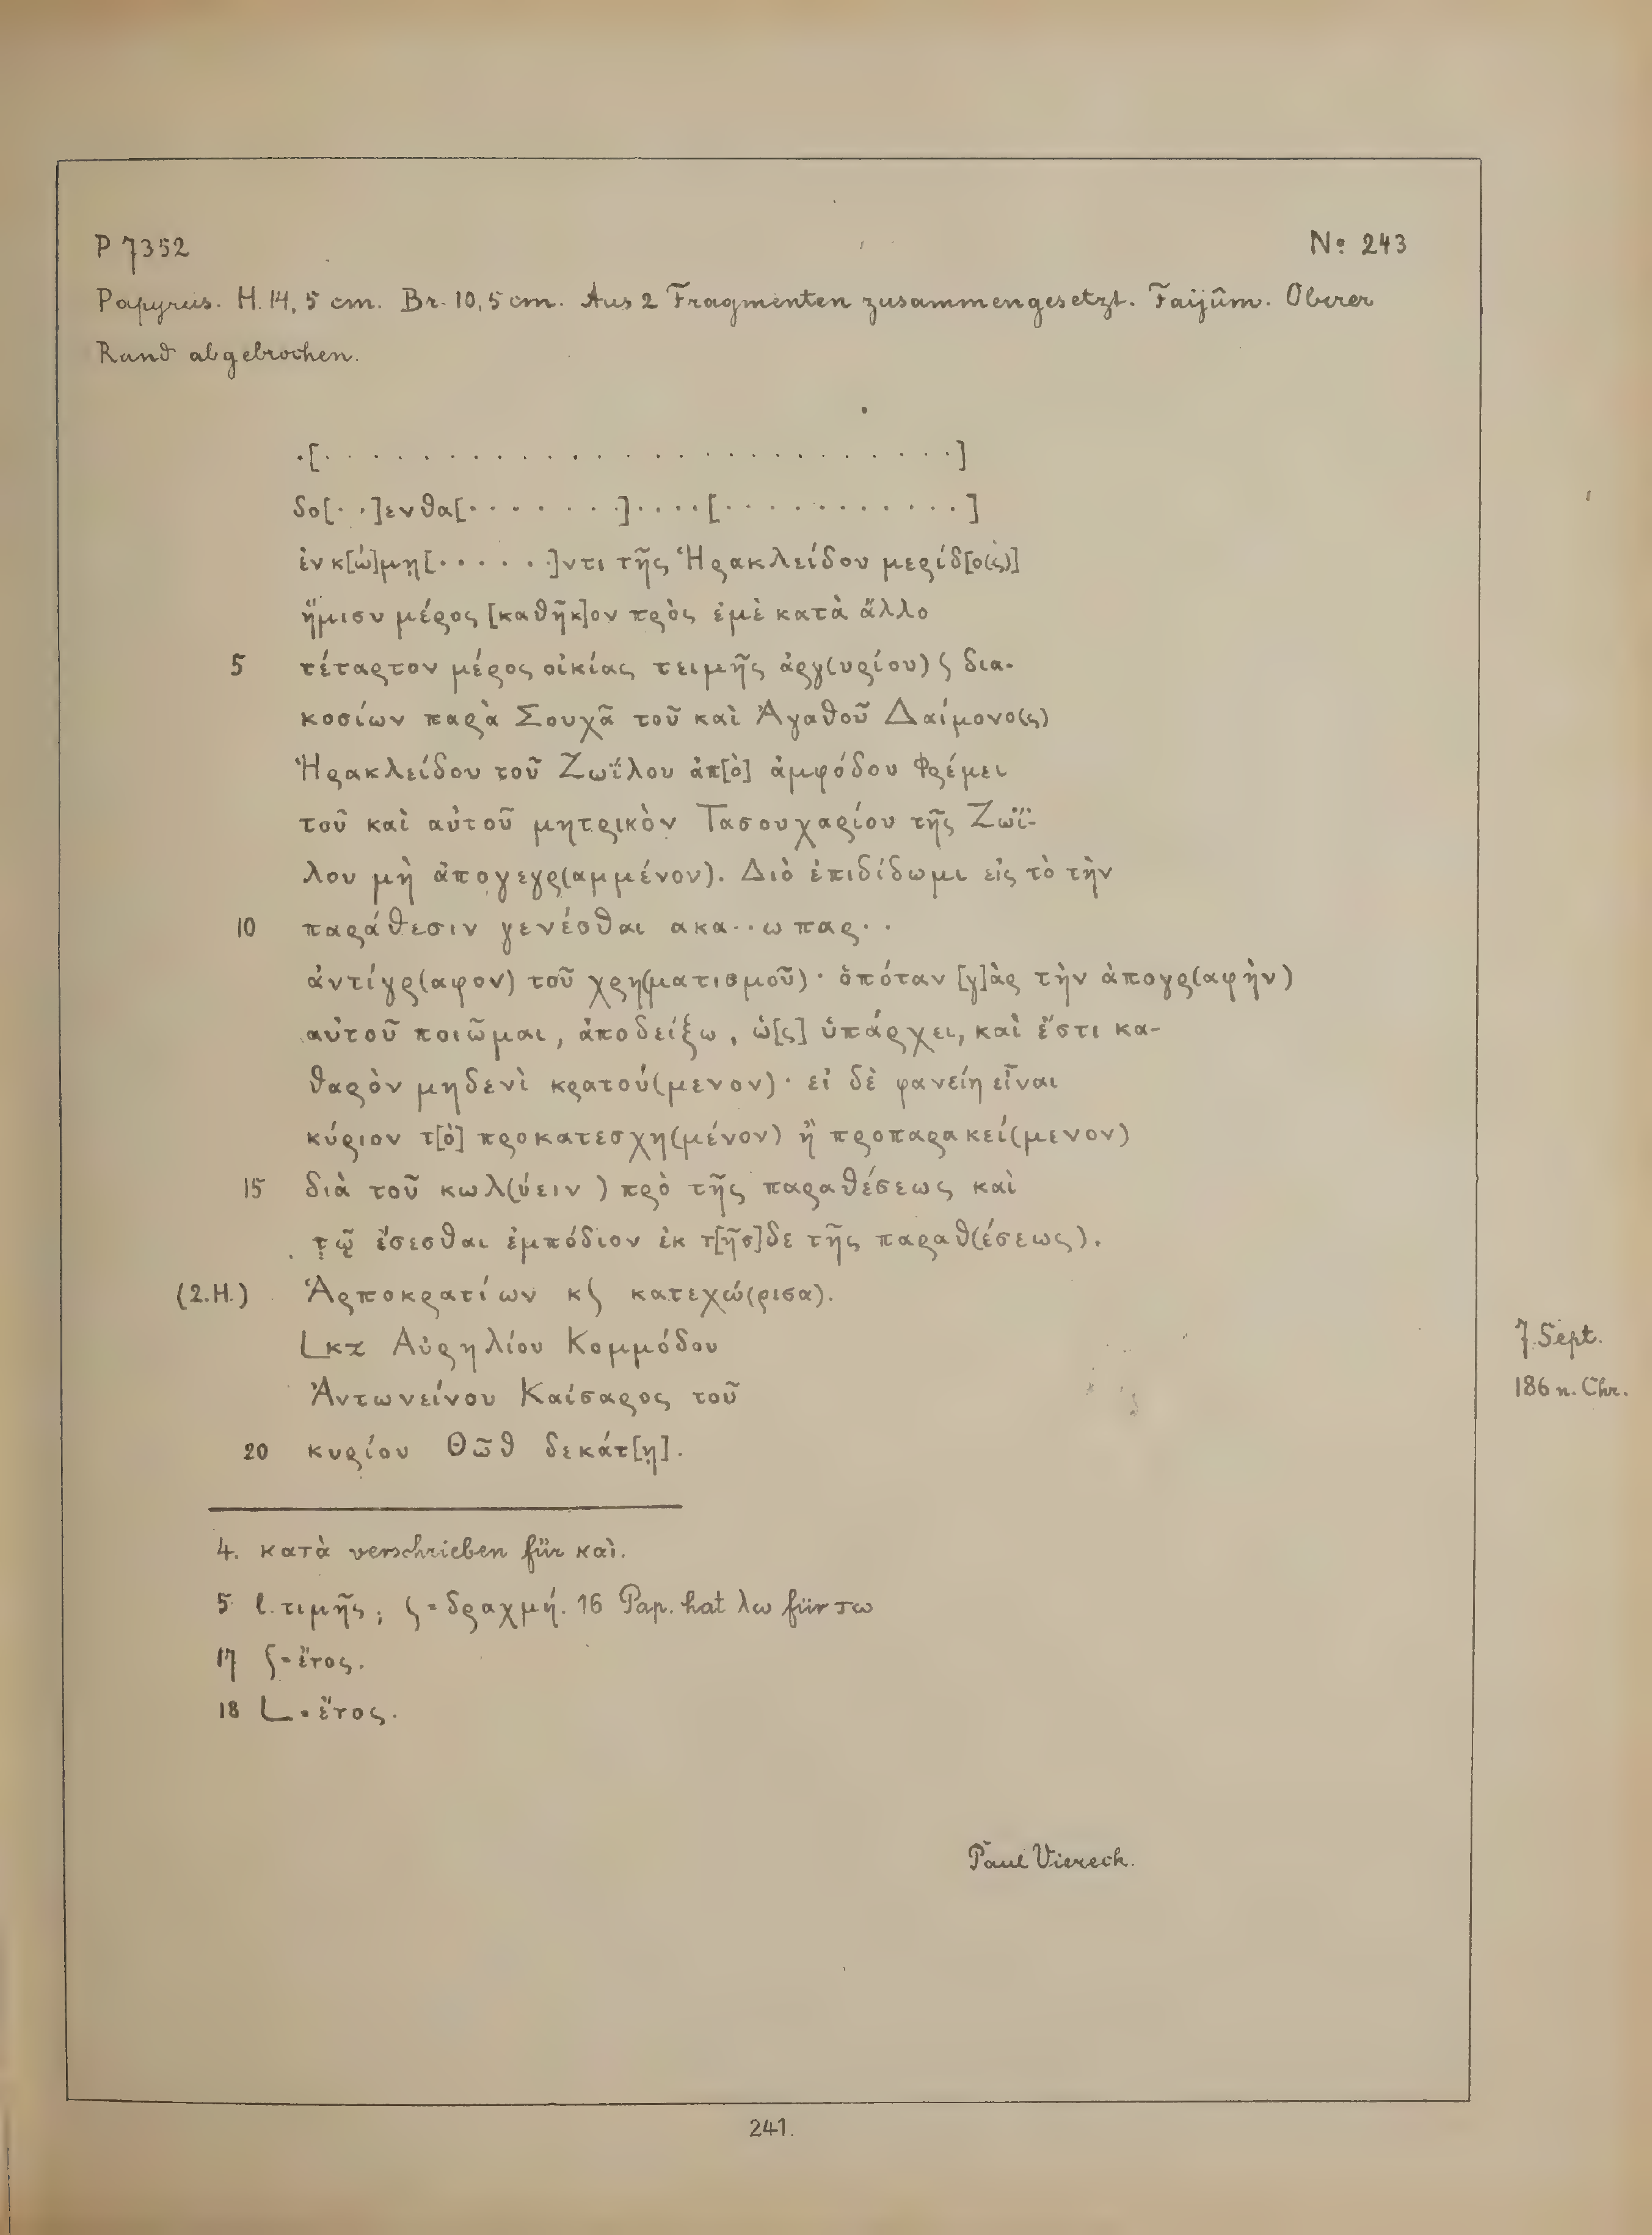 P 7352
No 243
Papyrus. H. 14,5 cm. Br. 10,5 cm. Aus 2 Fragmenten zusammengesetzt. Faijûm. Oberer
Rand abgebrochen.
.[. . . . . . . . . . . . . . . . . . . . . . . . . .]
δο[. .]ενθα[. . . . . . . .]. . . .[. . . . . . . . . . .]
ἐν κ[ώ]μῃ[. . . . . .]ντι τῆς Ἡρακλείδου μερίδ[ο(ς)]
ἥμισυ μέρος [καθῆκ]ον πρὸς ἐμὲ κατὰ ἄλλο
5 τέταρτον μέρος οἰκίας τειμῆς ἀργ(υρίου) ϛ δια-
κοσίων παρὰ Σουχᾶ τοῦ καὶ Ἀγαθοῦ Δαίμονο(ς)
Ἡρακλείδου τοῦ Ζωΐλου ἀπ[ὸ] ἀμφόδου Φρέμει
τοῦ καὶ αὐτοῦ μητρικὸν Τασουχαρίου τῆς Ζωΐ-
λου μὴ ἀπογεγρ(αμμένον). Διὸ ἐπιδίδωμι εἰς τὸ τὴν
10 παράθεσιν γενέσθαι ακα..ω παρ..
ἀντίγρ(αφον) τοῦ χρη(ματισμοῦ)· ὁπόταν [γ]ὰρ τὴν ἀπογρ(αφὴν)
αὐτοῦ ποιῶμαι, ἀποδείξω, ὡ[ς] ὑπάρχει, καὶ ἔστι κα-
θαρὸν μηδενὶ κρατού(μενον)· εἰ δὲ φανείη εἶναι
κύριον τ[ὸ] προκατεσχη(μένον) ἢ προπαρακεί(μενον)
15 διὰ τοῦ κωλ(ύειν ) πρὸ τῆς παραθέσεως καὶ
τῷ ἔσεσθαι ἐμπόδιον ἐκ τ[ῆσ]δε τῆς παραθ(έσεως).
(2.H.) Ἁρποκρατίων κϛ κατεχώ(ρισα).
𐅹κζ Αὐρηλίου Κομμόδου
Ἀντωνείνου Καίσαρος τοῦ
20 κυρίου Θῶθ δεκάτ[ῃ].
7. Sept.
186 n. Chr.
4. κατὰ verschrieben für καὶ.
5 l. τιμῆς; ϛ = δραχμή. 16 Pap. hat λω für τω
17 ϛ = ἔτος.
18 L = ἔτος.
Paul Viereck.
241.